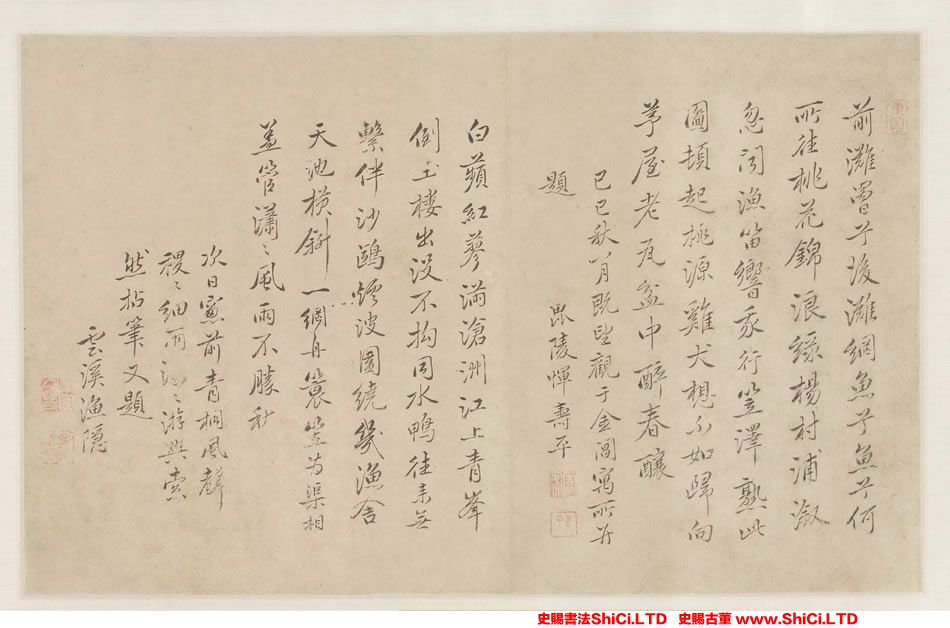 前灘罾兮後灘網魚兮魚兮何
所往桃花錦浪綠楊村浦漵
忽闻漁笛響我行笠澤熟此
圖頓起桃源雞犬想不如歸向
茅屋老瓦盆中醉春釀
己巳秋月既望觀于金閶寓所并
題
毗陵惲壽平
白蘋紅蓼滿滄洲江上青峯
倒玉樓出没不拘同水鴨往来無
繫伴沙鷗烟波圍繞幾漁舍
天池橫斜一綱舟簑笠為渠相
蓋管瀟〻風雨不勝秋
次日窻前青桐風聲
稷〻細雨游興索
然拈筆又題
雲溪漁隱
史賜書法ShiCi.LTD 史賜古董 www.ShiCi.LTD